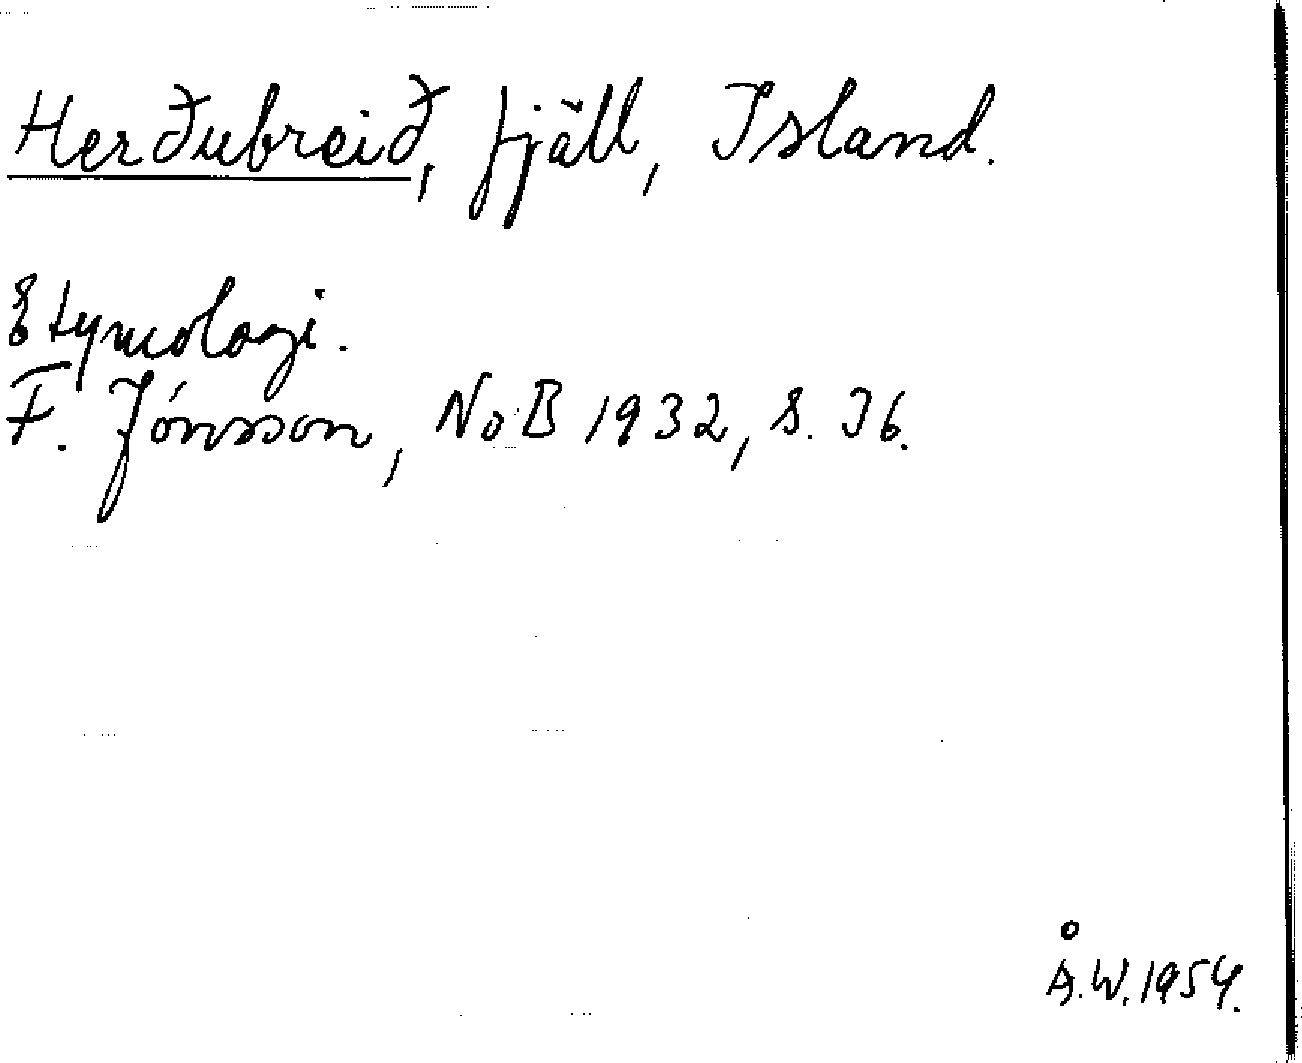 Herðubreið, fjäll, Island.
Etymologi.
F. Jónsson, NoB 1932, s. 76.
Å.W. 1954.